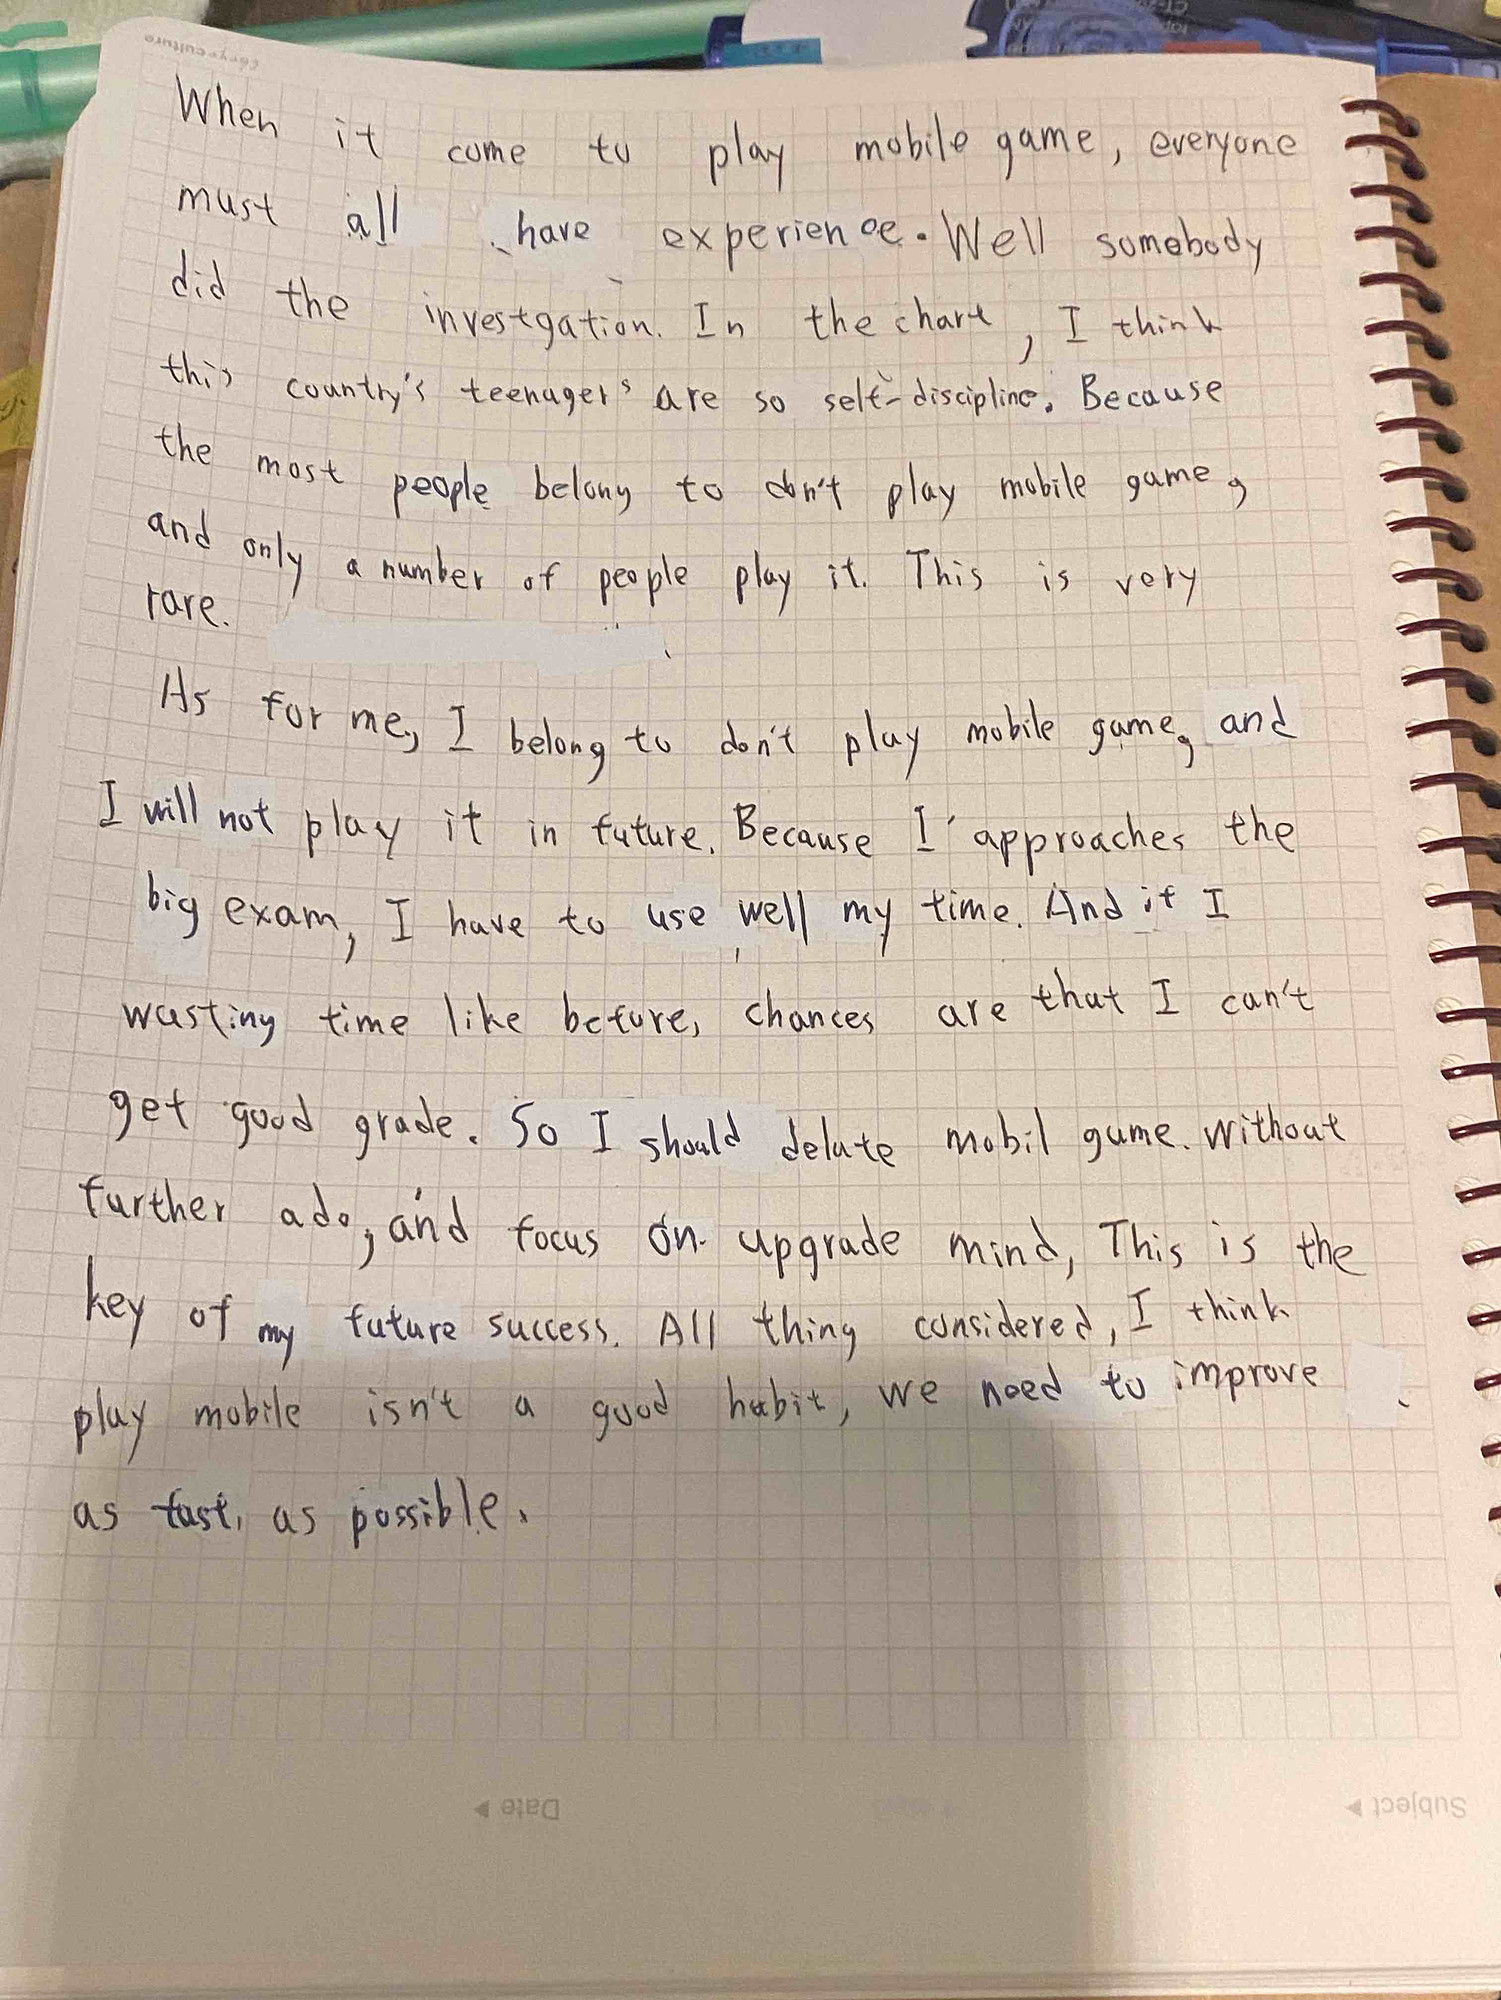 When it come to play mobile game, everyone
must all have experience. Well somebody
did the investgation. In the chart, I think
this country's teenager's are so self-discipline. Because
the most people belong to don't play mobile game,
and only a number of people play it. This is very
rare.
As for me, I belong to don't play mobile game, and
I will not play it in future. Because I approaches the
big exam, I have to use well my time. And if I
wasting time like before, chances are that I can't
get good grade. So I should delute mobil game. without
further ado, and focus on upgrade mind, This is the
key of my future success. All thing considered, I think
play mobile isn't a good habit, we need to improve
as fast, as possible.
Date
Subject